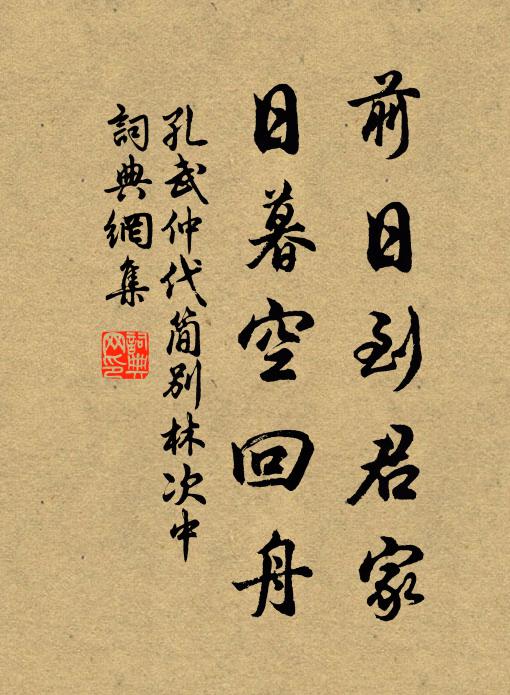 前日到君家
日暮空回舟
孔武仲代简别林次中
詞典網集
詞典網印